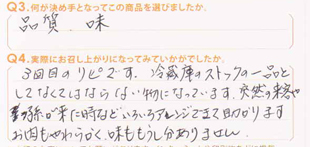 Q3.何が決め手となってこの商品を選びましたか。
品質 味
Q4.実際にお召し上がりになってみていかがでしたか。
3回目のリピです。冷蔵庫のストックの一品と
してなくてはならない物になっています。突然の来客や
孫が来た時などいろいろアレンジできて助かります
お肉もやわらかく味ももうし分ありません。